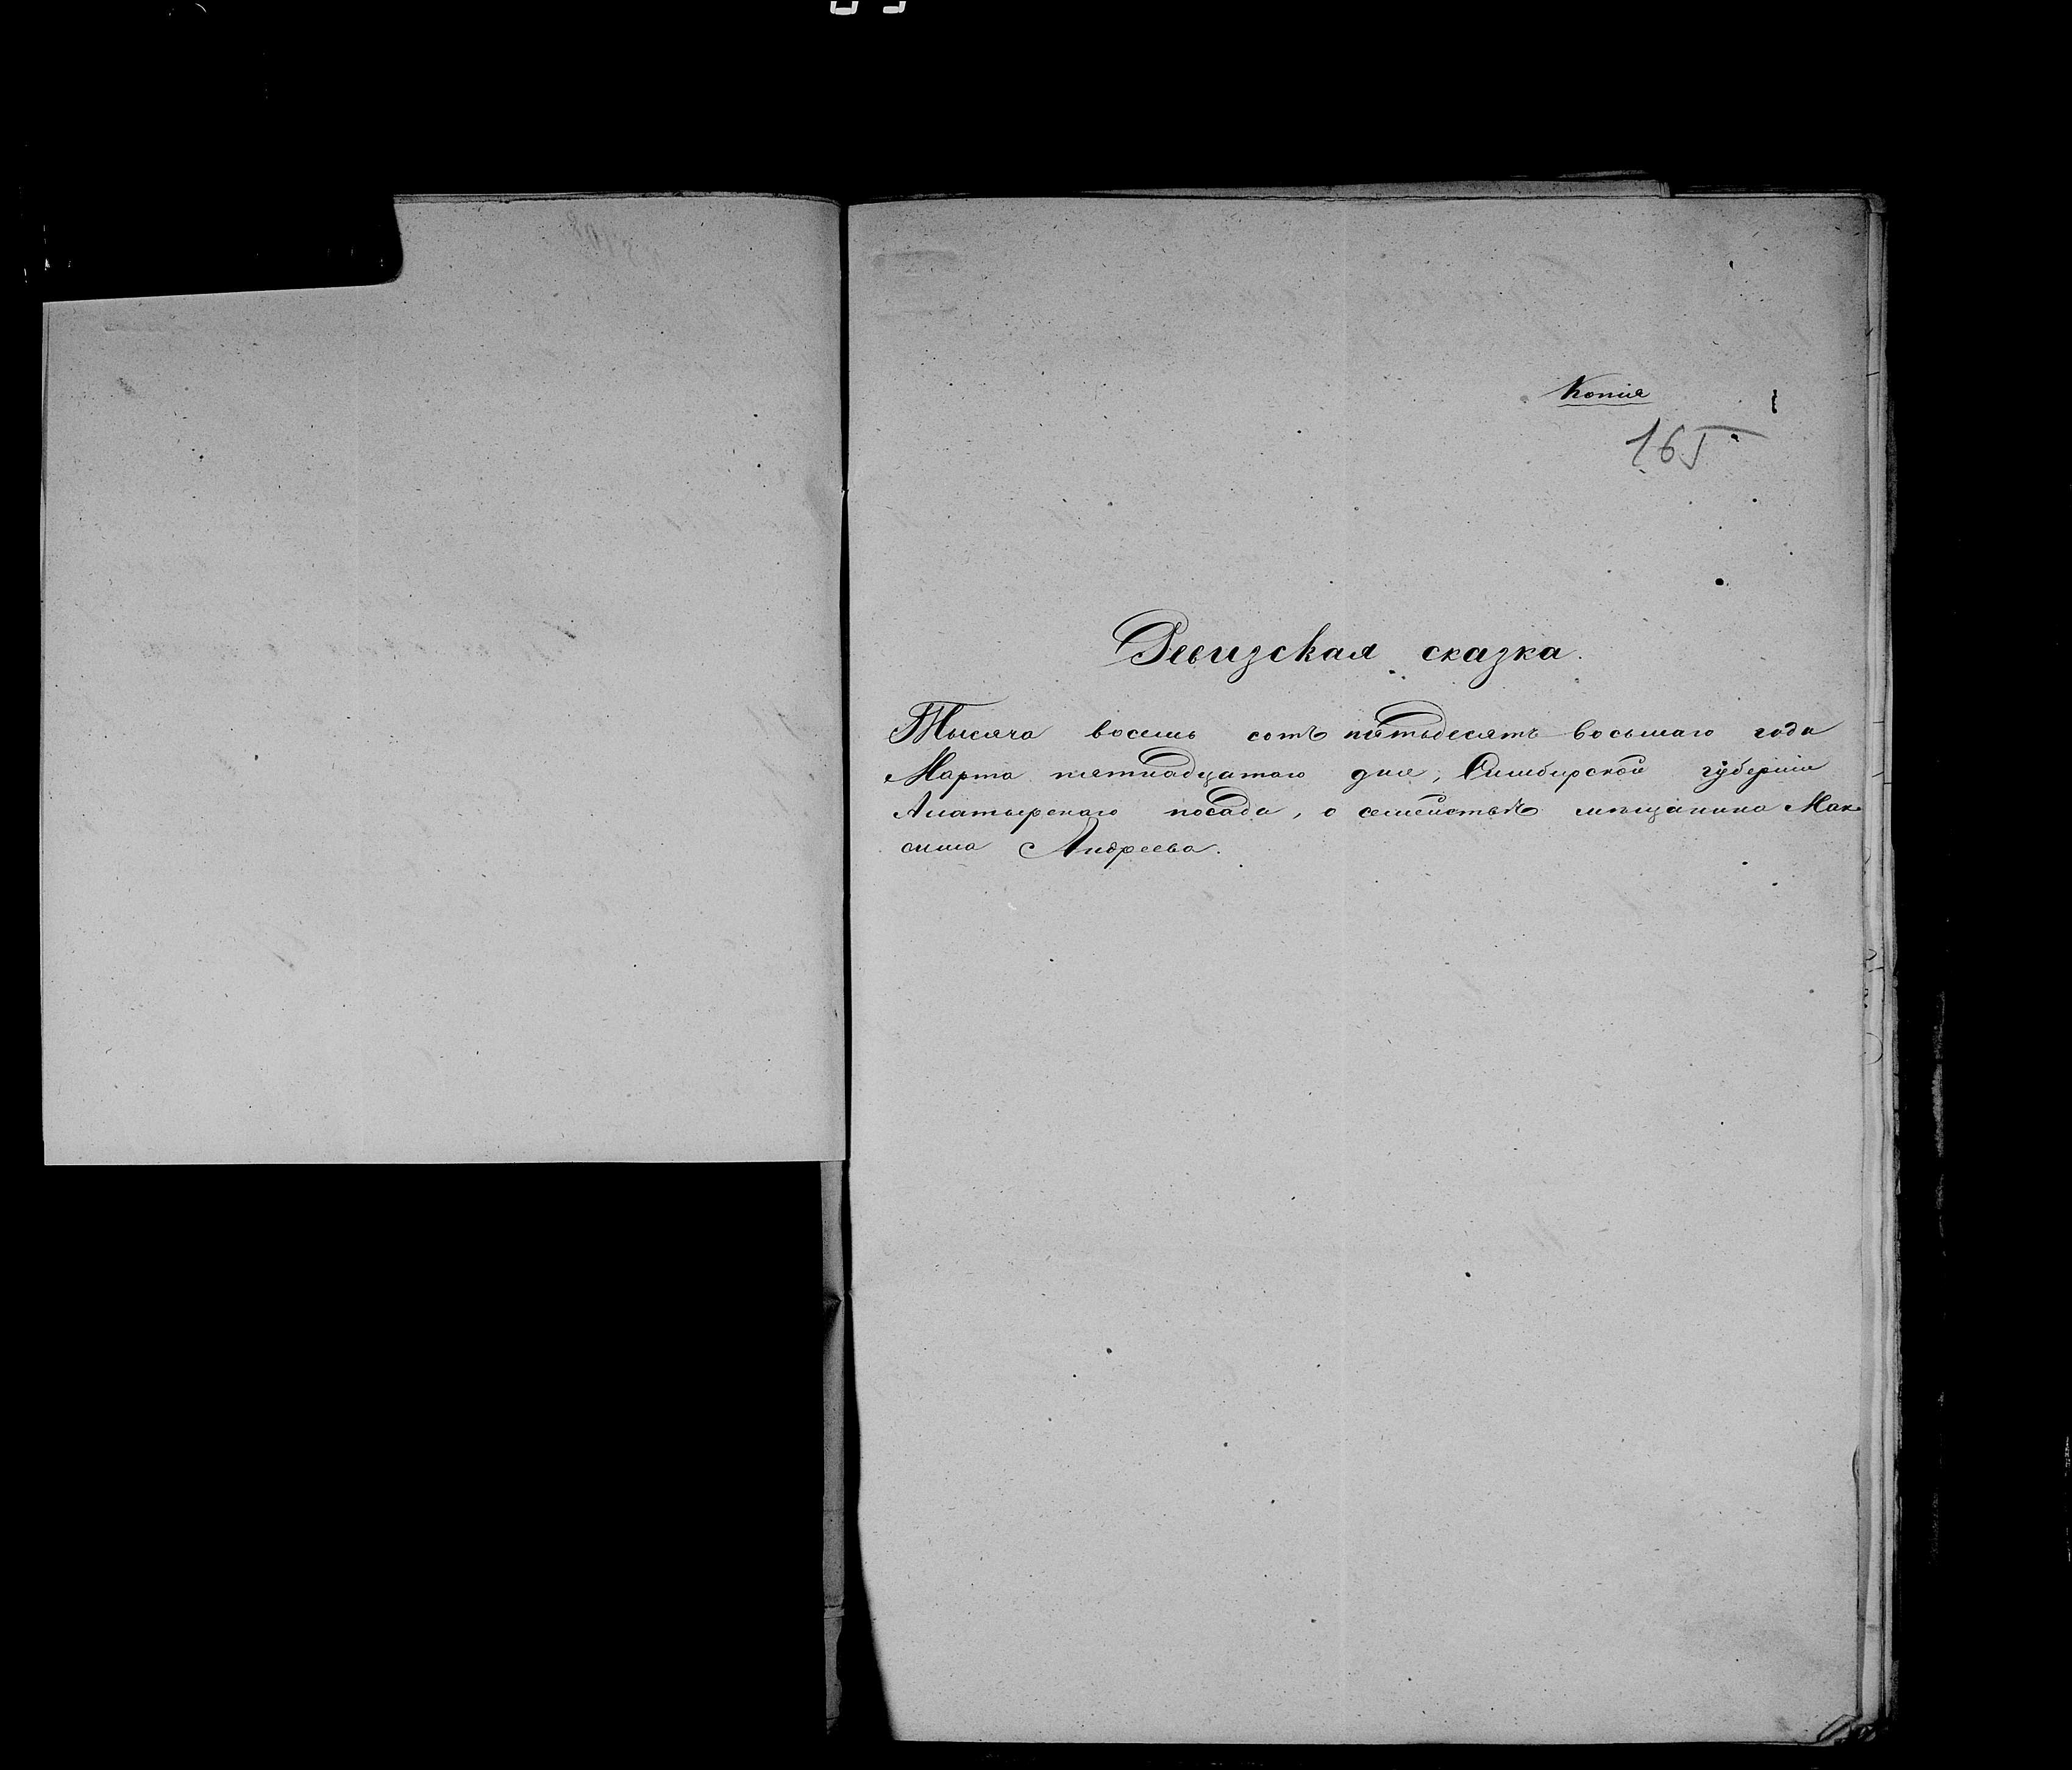 Копія
165
Ревизская сказка.
Тысяча восемь сотъ пятьдесятъ восьмаго года
Марта пятнадцатаго дня, Симбирской губерніи
Алатырскаго посада, о семействѣ мѣщанина Мак-
сима Андреева.